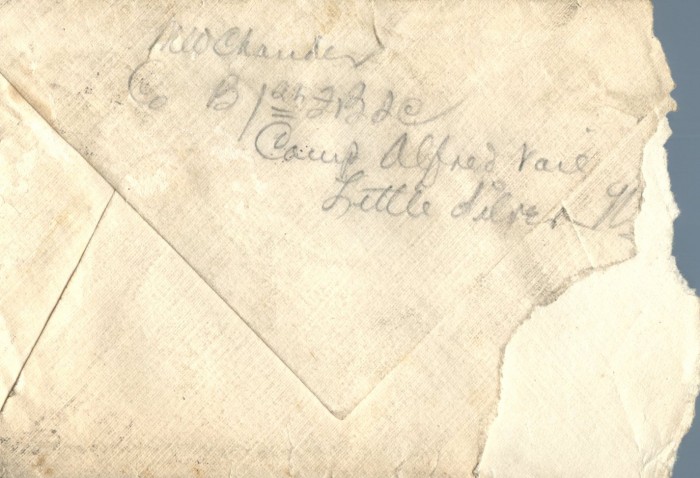 MW Chandler
Co B 1st F B S C
Camp Alfred Vail
Little Silver N